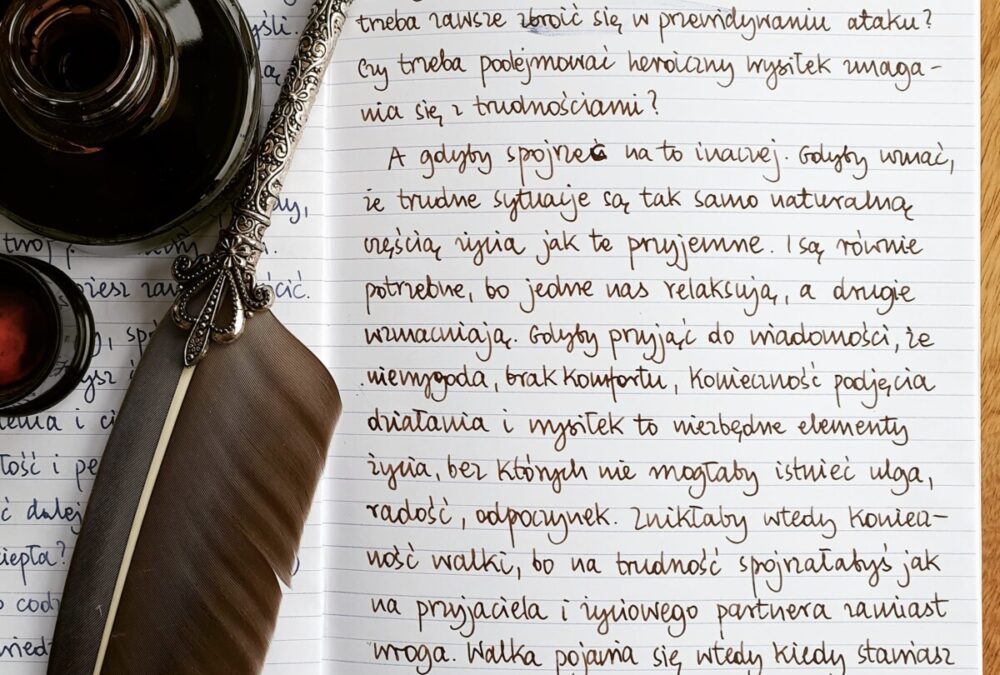 yśli.
ą
dy,
twoj
iesz zaw cić.
, sp
ysz
enia i ci
łość i pe
ć dalej
iepła?
o codz
wied
trzeba zawsze zbroić się w przewidywaniu ataku?
Czy trzeba podejmować heroiczny wysiłek zmaga-
nia się z trudnościami?
A gdyby spojrzeć na to inaczej. Gdyby uznać,
że trudne sytuacje są tak samo naturalną
częścią życia jak te przyjemne. I są równie
potrzebne, bo jedne nas relaksują, a drugie
wzmacniają. Gdyby przyjąć do wiadomości, że
niewygoda, brak komfortu, konieczność podjęcia
działania i wysiłek to niezbędne elementy
życia, bez których nie mogłaby istnieć ulga,
radość, odpoczynek. Znikłaby wtedy koniecz-
ność walki, bo na trudność spojrzałabyś jak
na przyjaciela i życiowego partnera zamiast
wroga. Walka pojawia się wtedy kiedy stawiasz